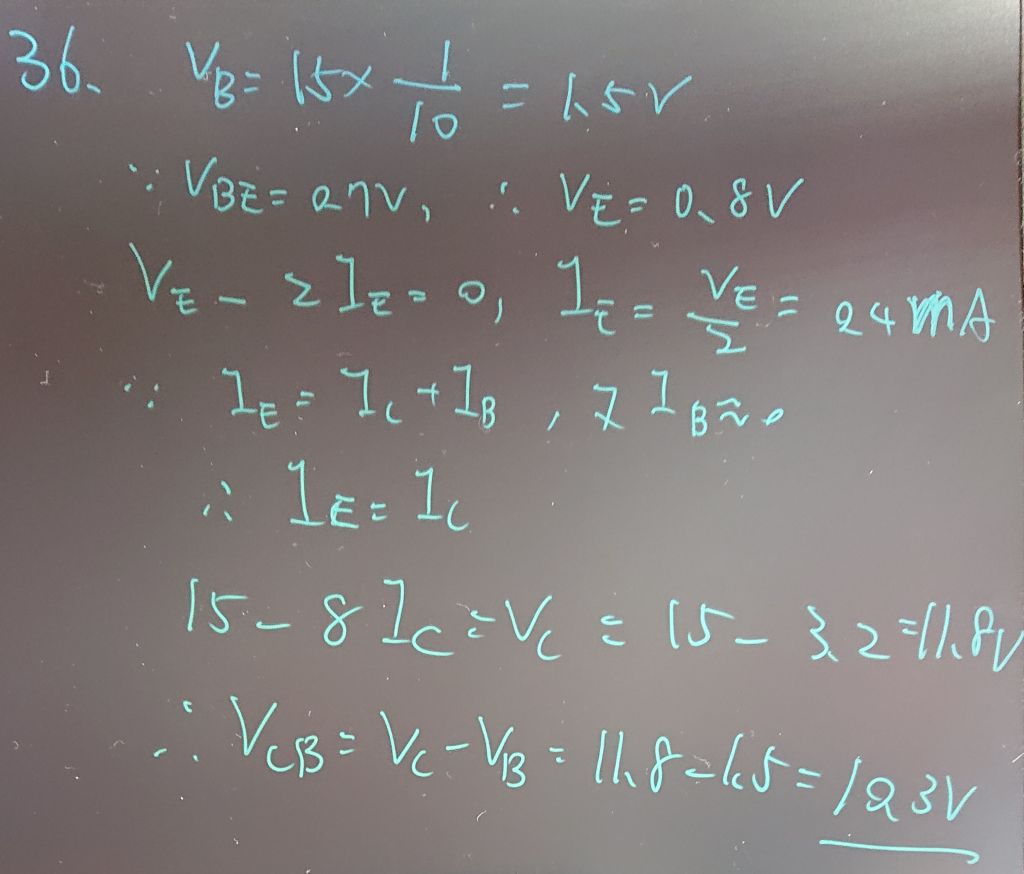 36. V_B = 15 × 1/10 = 1.5V
∵ V_BE = 0.7V, ∴ V_E = 0.8V
V_E - 2I_E = 0, I_E = V_E/2 = 0.4mA
∵ I_E = I_C + I_B, 又 I_B ≈ 0
∴ I_E = I_C
15 - 8I_C = V_C = 15 - 3.2 = 11.8V
∴ V_CB = V_C - V_B = 11.8 - 1.5 = 10.3V